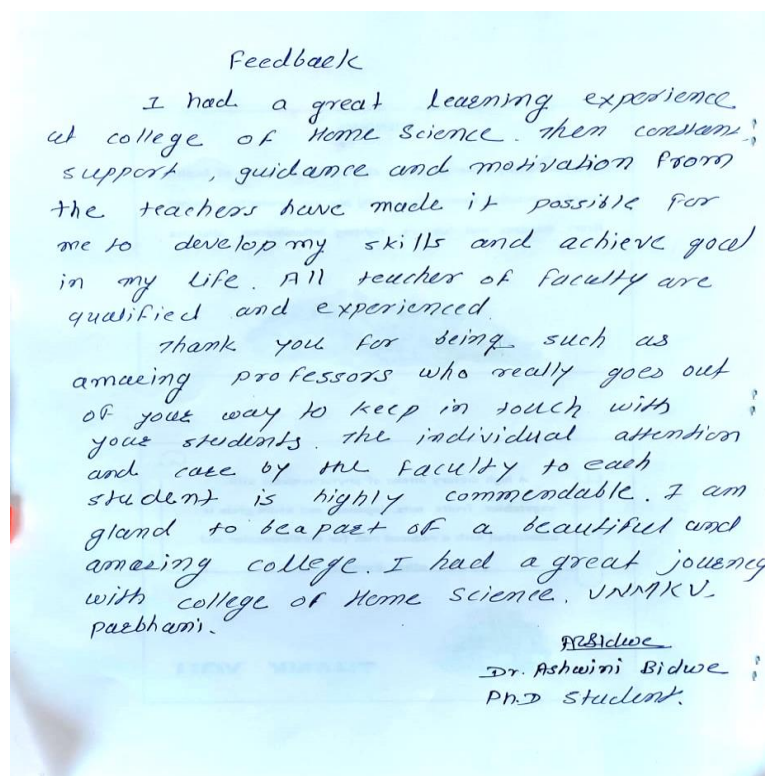 Feedback
I had a great learning experience
at college of Home Science. Then constant
support, guidance and motivation from
the teachers have made it possible for
me to develop my skills and achieve goal
in my life. All teacher of faculty are
qualified and experienced.
Thank you for being such as
amazing professors who really goes out
of your way to keep in touch with
your students. The individual attention
and care by the faculty to each
student is highly commendable. I am
gland to be a part of a beautiful and
amazing college. I had a great journey
with college of Home Science. VNMKV
Parbhani.
ABidwe
Dr. Ashwini Bidwe
Ph.D Student.